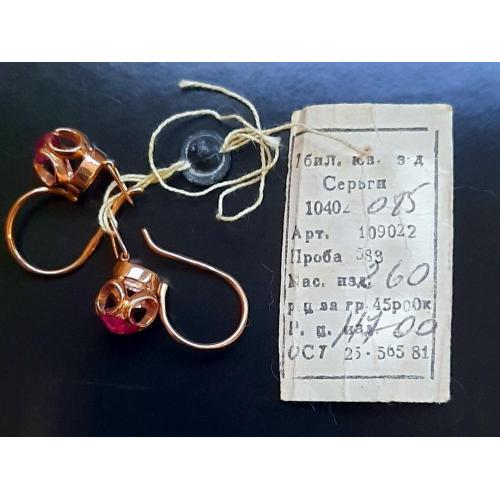 бил. юв. з-д
Серьги
10402 085
Арт. 109022
Проба 583
Мас. изд. 2 60
р.ц за гр. 45р00к
Р. ц. изд. 117-00
ОСТ 25·565 81